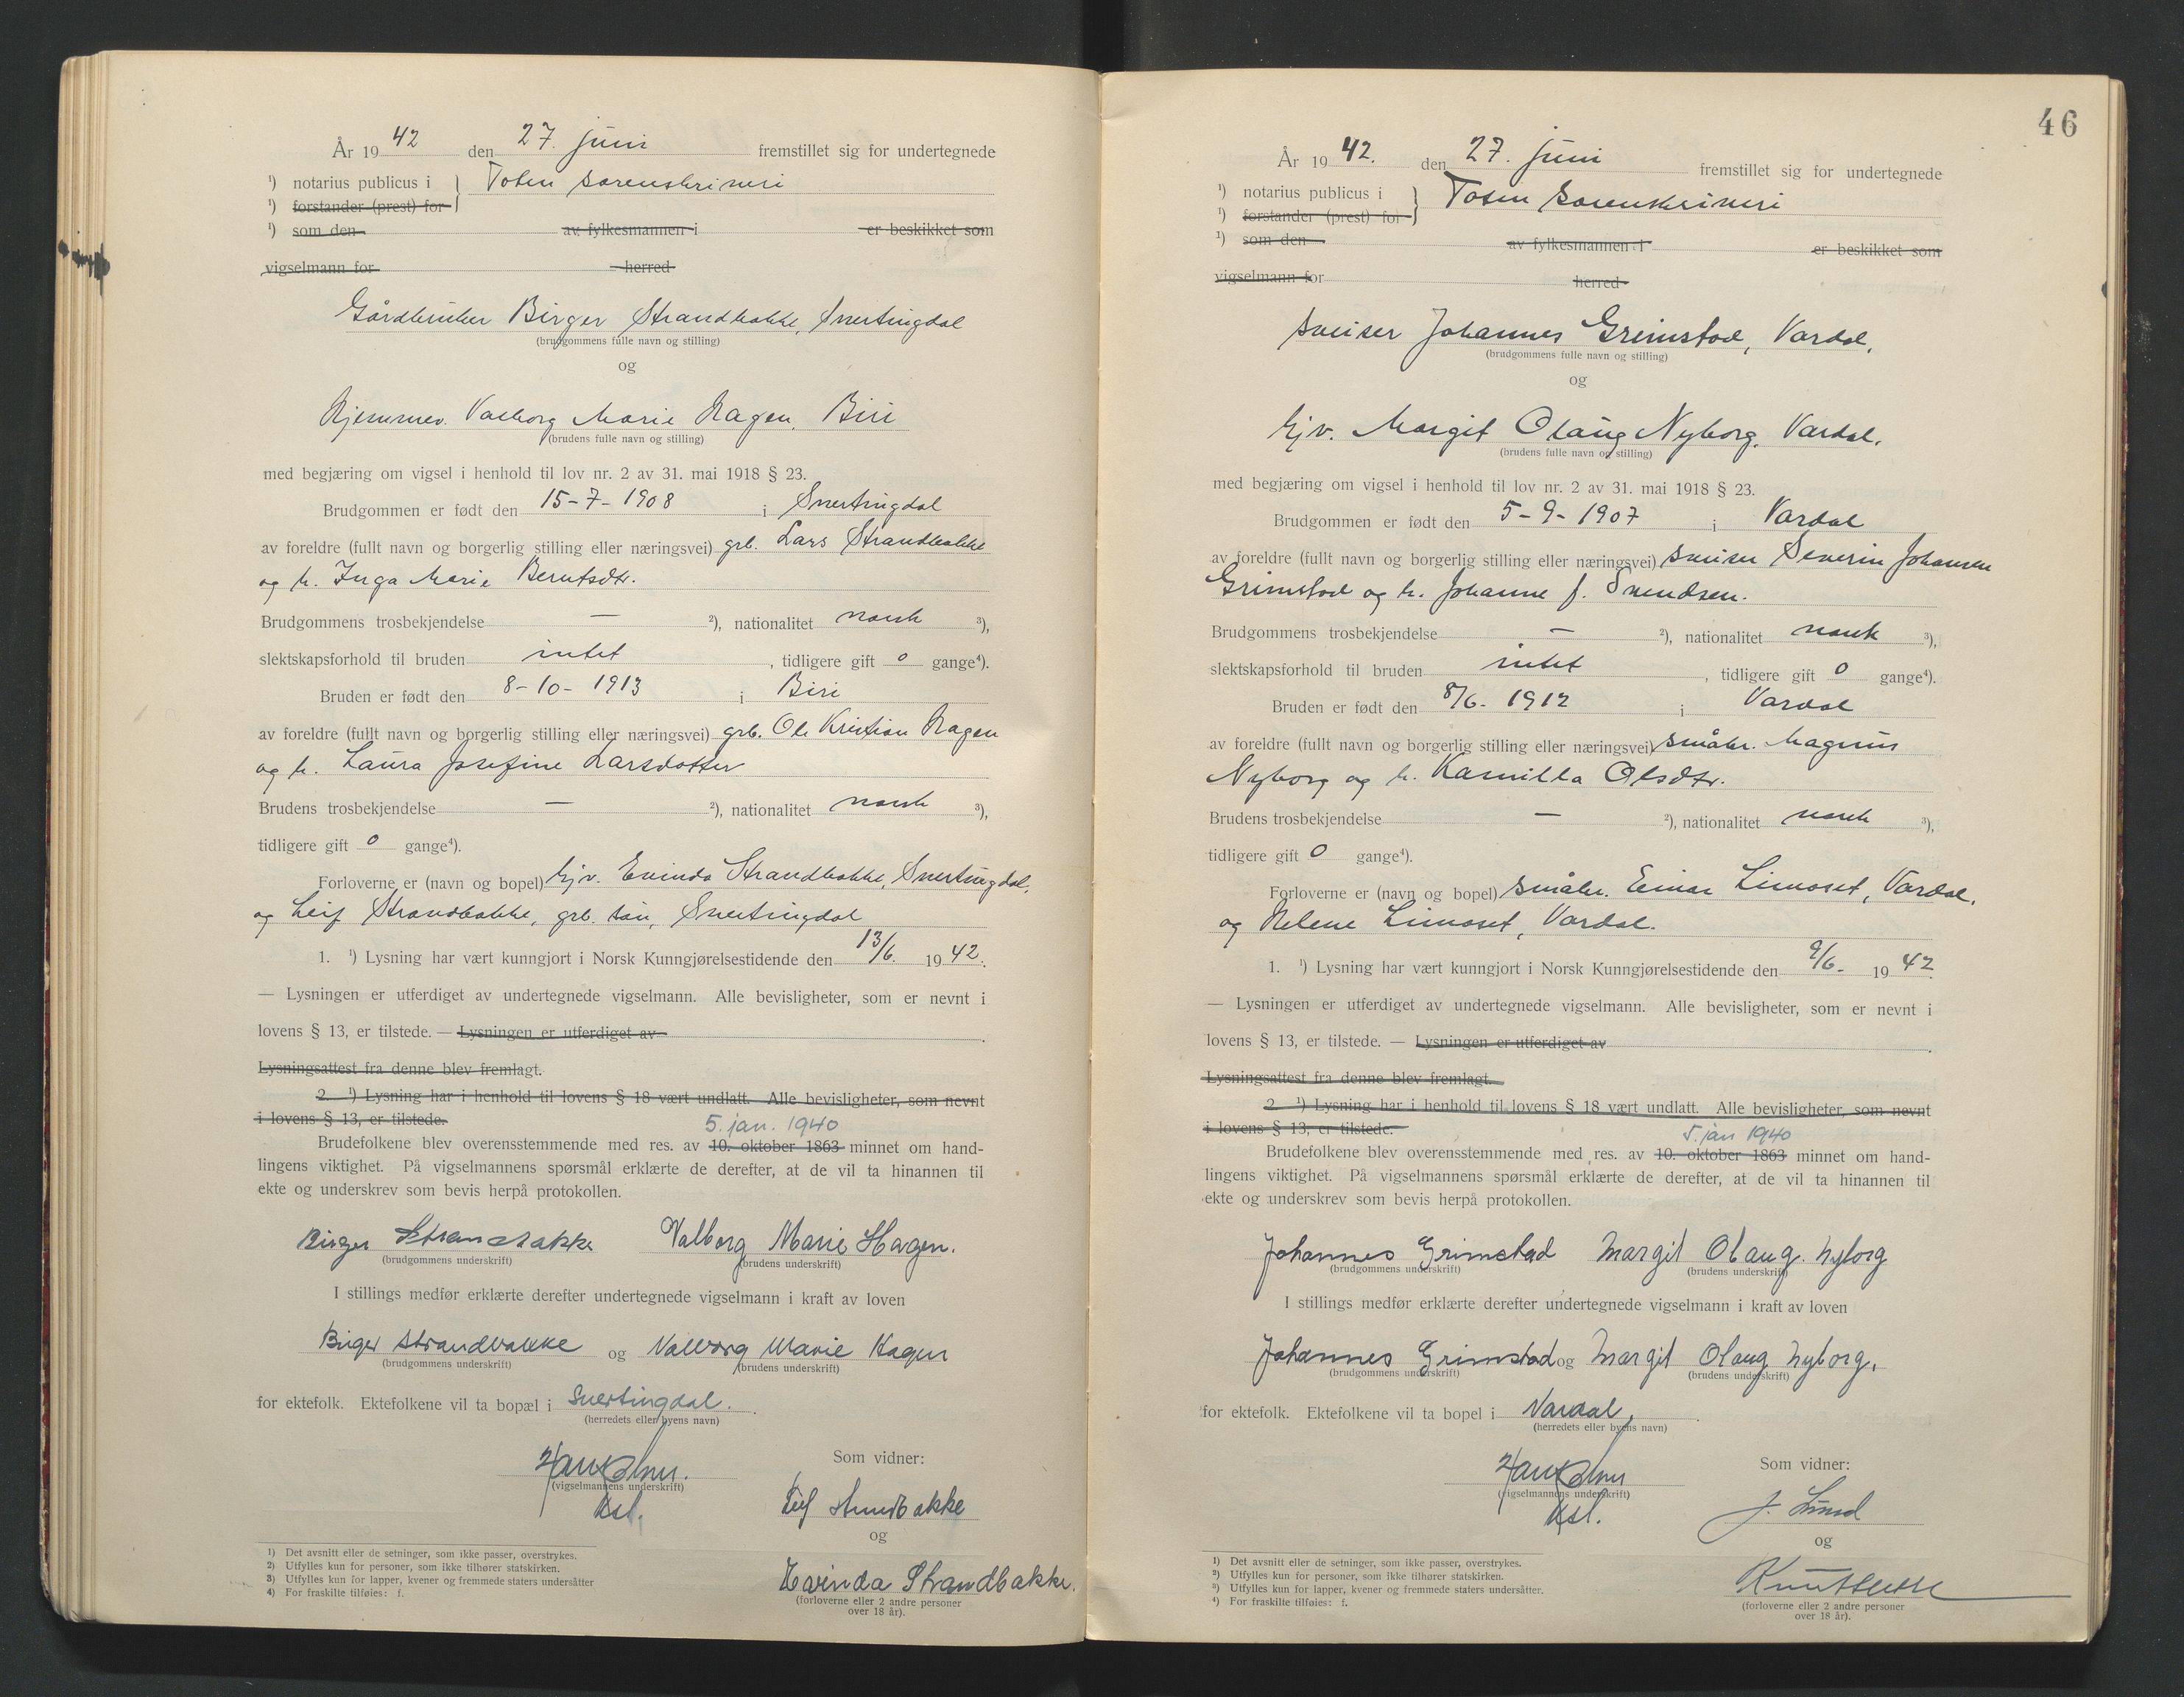 År 1942 den 27. juni fremstillet sig for undertegnede
1) notarius publicus i } Toten sorenskriveri
1) forstander (prest) for
1) som den av fylkesmannen i er beskikket som
vigselmann for herred
Gårdbruker Birger Strandbakke, Snertingdal
(brudgommens fulle navn og stilling)
og
Hjemmev. Valborg Marie Hagen, Biri
(brudens fulle navn og stilling)
med begjæring om vigsel i henhold til lov nr. 2 av 31. mai 1918 § 23.
Brudgommen er født den 15-7-1908 i Snertingdal
av foreldre (fullt navn og borgerlig stilling eller næringsvei) grb. Lars Strandbakke
og h. Inga Marie Berntsdtr.
Brudgommens trosbekjendelse — 2), nationalitet norsk 3),
slektskapsforhold til bruden intet, tidligere gift 0 gange4).
Bruden er født den 8-10-1913 i Biri
av foreldre (fullt navn og borgerlig stilling eller næringsvei) grb. Ole Kristian Hagen
og h. Laura Josefine Larsdotter
Brudens trosbekjendelse — 2), nationalitet norsk 3),
tidligere gift 0 gange4).
Forloverne er (navn og bopel) hjv. Evinda Strandbakke, Snertingdal,
og Leif Strandbakke, grb. søn, Snertingdal
1. 1) Lysning har vært kunngjort i Norsk Kunngjørelsestidende den 13/6. 1942.
— Lysningen er utferdiget av undertegnede vigselmann. Alle bevisligheter, som er nevnt i
lovens § 13, er tilstede. — Lysningen er utferdiget av .
Lysningsattest fra denne blev fremlagt.
2. 1) Lysning har i henhold til lovens § 18 vært undlatt. Alle bevisligheter, som nevnt
i lovens § 13, er tilstede.
5. jan. 1940
Brudefolkene blev overensstemmende med res. av 10. oktober 1863 minnet om hand-
lingens viktighet. På vigselmannens spørsmål erklærte de derefter, at de vil ta hinannen til
ekte og underskrev som bevis herpå protokollen.
Birger Strandbakke Valborg Marie Hagen.
(brudgommens underskrift) (brudens underskrift)
I stillings medfør erklærte derefter undertegnede vigselmann i kraft av loven
Birger Strandbakke og Valborg Marie Hagen
(brudgommens underskrift) (brudens underskrift)
for ektefolk. Ektefolkene vil ta bopæl i Snertingdal.
(herredets eller byens navn)
Som vidner:
(vigselmannens underskrift)
Leif Strandbakke
og
Evinda Strandbakke.
(forloverne eller 2 andre personer
over 18 år).
1) Det avsnitt eller de setninger, som ikke passer, overstrykes.
2) Utfylles kun for personer, som ikke tilhører statskirken.
3) Utfylles kun for lapper, kvener og fremmede staters undersåtter
4) For fraskilte tilføies: f.
46
År 1942. den 27. juni fremstillet sig for undertegnede
1) notarius publicus i } Toten sorenskriveri
1) forstander (prest) for
1) som den av fylkesmannen i er beskikket som
vigselmann for herred
sveiser Johannes Grimstad, Vardal,
(brudgommens fulle navn og stilling)
og
hjv. Margit Olaug Nyborg, Vardal.
(brudens fulle navn og stilling)
med begjæring om vigsel i henhold til lov nr. 2 av 31. mai 1918 § 23.
Brudgommen er født den 5-9-1907 i Vardal
av foreldre (fullt navn og borgerlig stilling eller næringsvei) sveiser Severin Johansen
Grimstad og h. Johanne f. Svendsen.
Brudgommens trosbekjendelse — 2), nationalitet norsk 3),
slektskapsforhold til bruden intet, tidligere gift 0 gange4).
Bruden er født den 8/6. 1912 i Vardal
av foreldre (fullt navn og borgerlig stilling eller næringsvei) småbr. Magnus
Nyborg og h. Kamilla Olsdtr.
Brudens trosbekjendelse — 2), nationalitet norsk 3),
tidligere gift 0 gange4).
Forloverne er (navn og bopel) småbr. Einar Limoset, Vardal,
og Helene Limoset, Vardal.
1. 1) Lysning har vært kunngjort i Norsk Kunngjørelsestidende den 9/6. 1942.
— Lysningen er utferdiget av undertegnede vigselmann. Alle bevisligheter, som er nevnt i
lovens § 13, er tilstede. — Lysningen er utferdiget av .
Lysningsattest fra denne blev fremlagt.
2. 1) Lysning har i henhold til lovens § 18 vært undlatt. Alle bevisligheter, som nevnt
i lovens § 13, er tilstede.
5. jan 1940
Brudefolkene blev overensstemmende med res. av 10. oktober 1863 minnet om hand-
lingens viktighet. På vigselmannens spørsmål erklærte de derefter, at de vil ta hinannen til
ekte og underskrev som bevis herpå protokollen.
Johannes Grimstad Margit Olaug. Nyborg
(brudgommens underskrift) (brudens underskrift)
I stillings medfør erklærte derefter undertegnede vigselmann i kraft av loven
Johannes Grimstad og Margit Olaug Nyborg.
(brudgommens underskrift) (brudens underskrift)
for ektefolk. Ektefolkene vil ta bopel i Vardal,
(herredets eller byens navn)
Som vidner:
(vigselmannens underskrift)
J. Lund
og
(forloverne eller 2 andre personer
over 18 år).
1) Det avsnitt eller de setninger, som ikke passer, overstrykes.
2) Utfylles kun for personer, som ikke tilhører statskirken.
3) Utfylles kun for lapper, kvener og fremmede staters undersåtter.
4) For fraskilte tilføies: f.